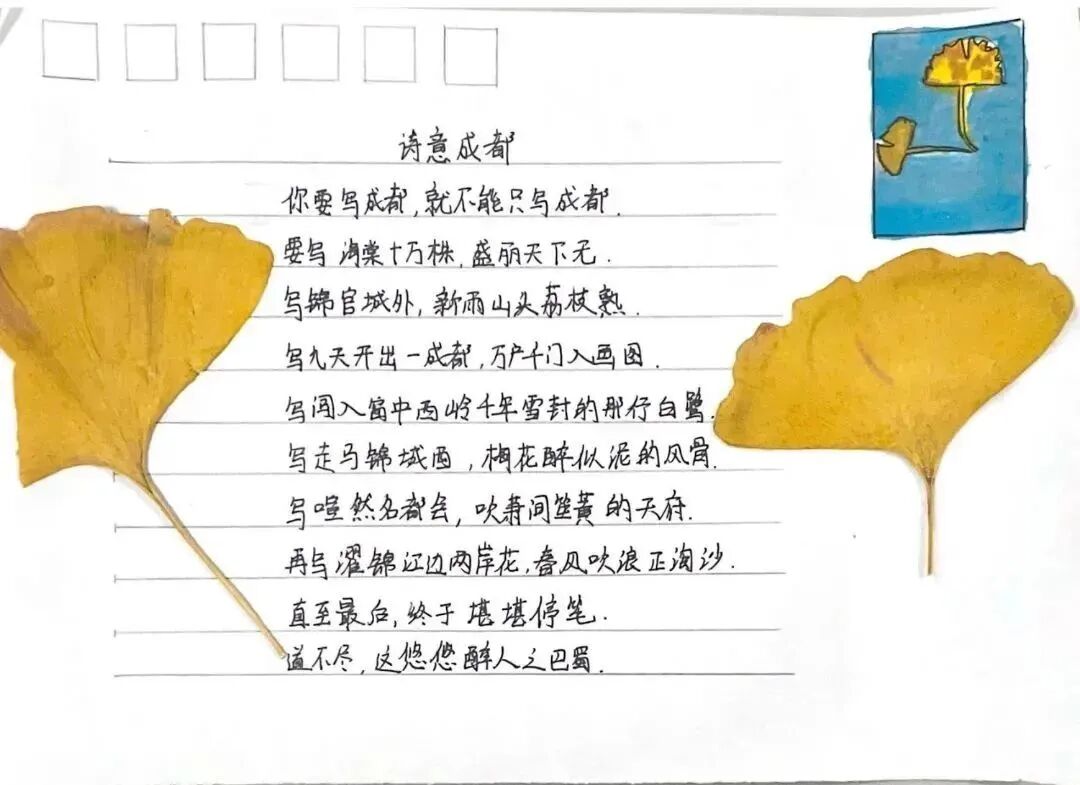 诗意成都
你要写成都,就不能只写成都.
要写 海棠十万株,盛丽天下无.
写锦官城外,新雨山头荔枝熟.
写九天开出一成都,万户千门入画图.
写闯入窗中西岭千年雪封的那行白鹭.
写走马锦城西,梅花醉似泥的风骨.
写喧然名都会,吹箫间笙簧的天府.
再写濯锦江边两岸花,春风吹浪正淘沙.
直至最后,终于堪堪停笔.
道不尽,这悠悠醉人之巴蜀.